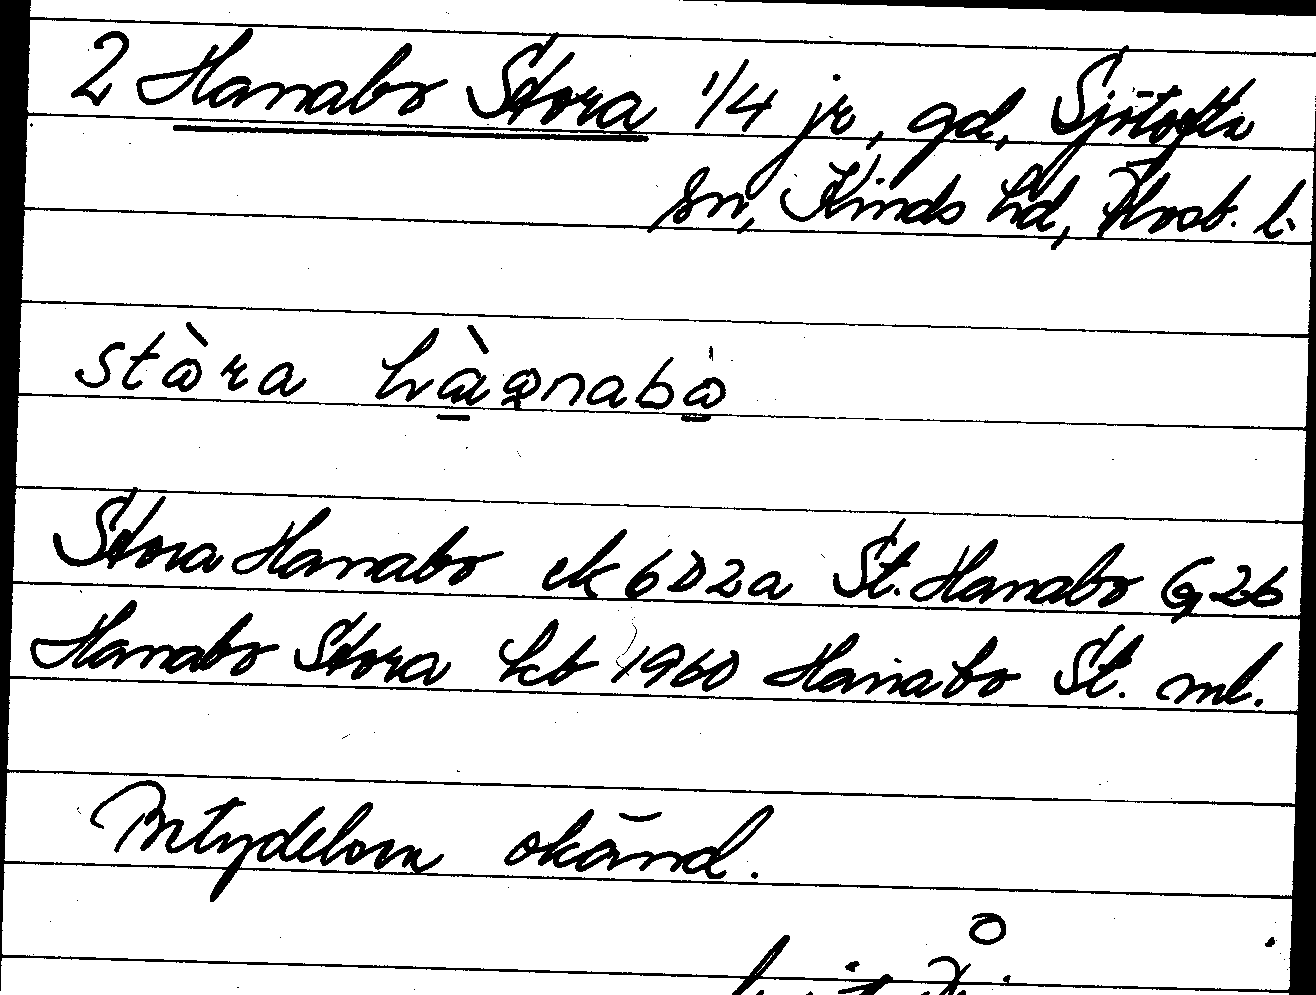 2 Hanabo Stora 1/4 jr, gd, Sjötofta
sn, Kinds hd, Älvsb. l.
stòra hànabo
Stora Hanabo ek 6D2a St. Hanabo G 26
Hanabo Stora kb 1960 Hanabo St. ml.
Betydelsen okänd.